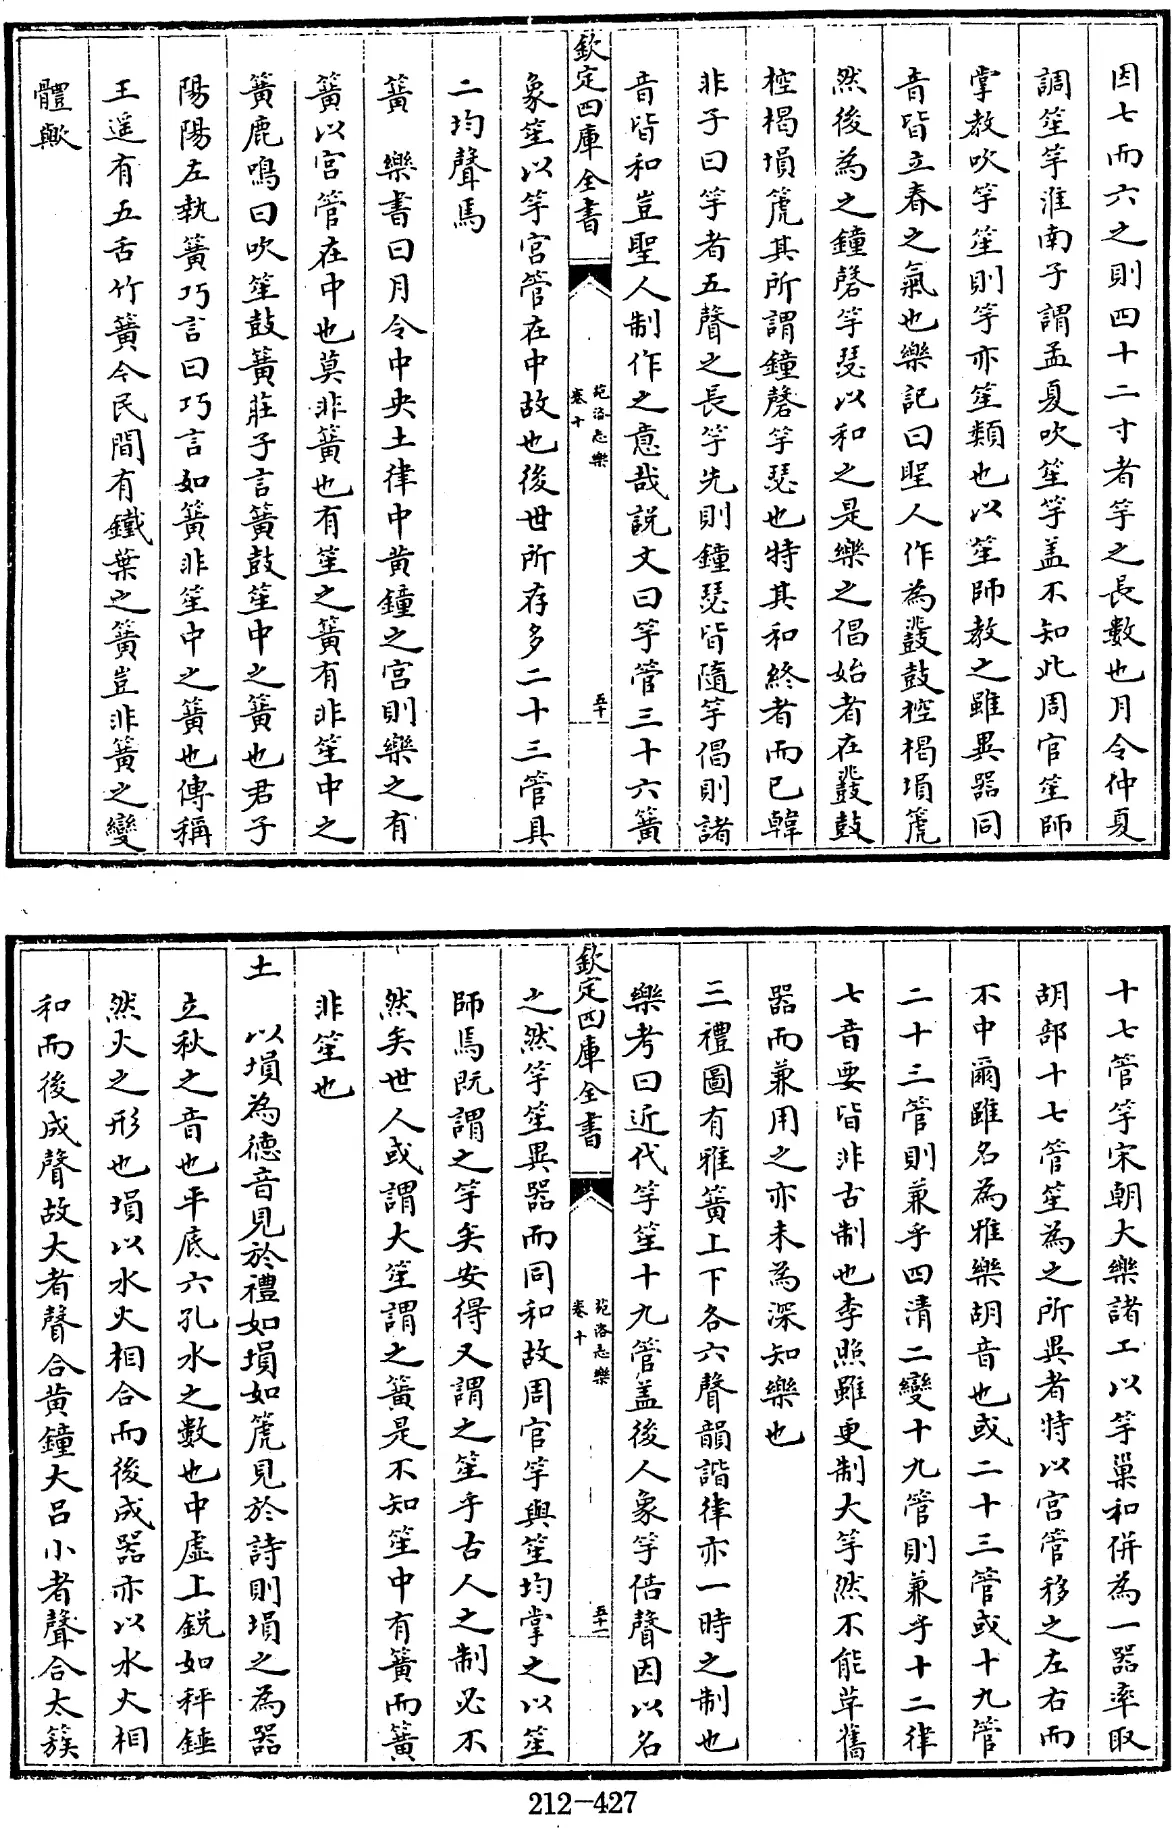 因七而六之則四十二寸者竽之長數也月令仲夏
調笙竽淮南子謂孟夏吹笙竽盖不知此周官笙師
掌教吹竽笙則竽亦笙類也以笙師教之雖異器同
音皆立春之氣也樂記曰聖人作為鼗鼓椌楬塤箎
然後為之鐘磬竽瑟以和之是樂之倡始者在鼗鼓
椌楬塤箎其所謂鐘磬竽瑟也特其和終者而已韓
非子曰竽者五聲之長竽先則鐘瑟皆隨竽倡則諸
音皆和豈聖人制作之意哉説文曰竽管三十六簧
欽定四庫全書
苑洛志樂
卷十
五十
象笙以竽宫管在中故也後世所存多二十三管具
二均聲焉
簧　樂書曰月令中央土律中黄鐘之宫則樂之有
簧以宫管在中也莫非簧也有笙之簧有非笙中之
簧鹿鳴曰吹笙鼓簧莊子言簧鼓笙中之簧也君子
陽陽左執簧巧言曰巧言如簧非笙中之簧也傳稱
王遥有五舌竹簧今民間有鐵葉之簧豈非簧之變
體歟
十七管竽宋朝大樂諸工以竽巢和併為一器率取
胡部十七管笙為之所異者特以宫管移之左右而
不中爾雖名為雅樂胡音也或二十三管或十九管
二十三管則兼乎四清二變十九管則兼乎十二律
七音要皆非古制也李照雖更制大竽然不能革舊
器而兼用之亦未為深知樂也
三禮圖有雅簧上下各六聲韻諧律亦一時之制也
樂考曰近代竽笙十九管盖後人象竽倍聲因以名
欽定四庫全書
苑洛志樂
卷十
五十一
之然竽笙異器而同和故周官竽與笙均掌之以笙
師焉既謂之竽矣安得又謂之笙乎古人之制必不
然矣世人或謂大笙謂之簧是不知笙中有簧而簧
非笙也
土　以塤為德音見於禮如塤如箎見於詩則塤之為器
立秋之音也平底六孔水之數也中虚上鋭如秤錘
然火之形也塤以水火相合而後成器亦以水火相
和而後成聲故大者聲合黄鐘大吕小者聲合太簇
212-427